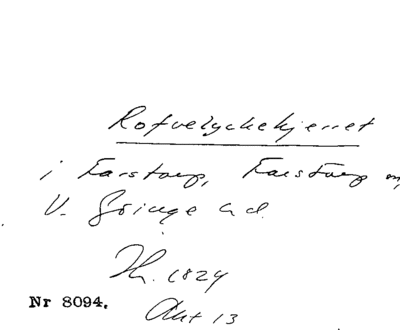 Rofvelyckekjerret
i Farstorp, Farstorp o
V. Göinge hd.
Th. 1824
Nr 8094.
Akt 13